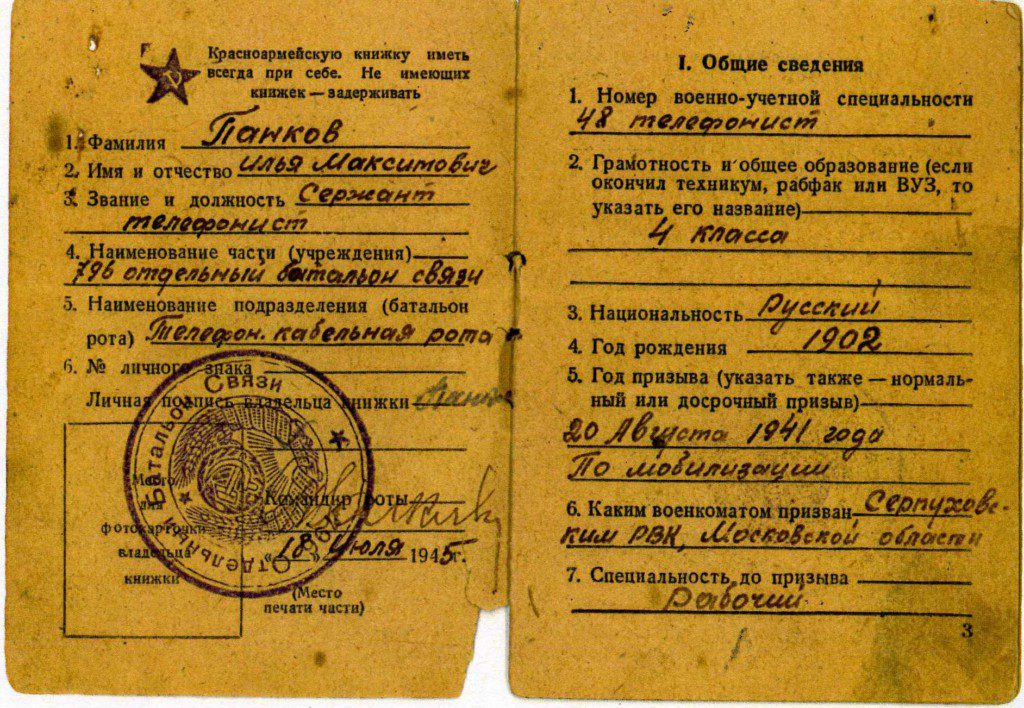 Красноармейскую книжку иметь
всегда при себе. Не имеющих
книжек — задерживать
1. Фамилия Панков
2. Имя и отчество Илья Максимович
3. Звание и должность Сержант
телефонист
4. Наименование части (учреждения)
796 отдельный батальон связи
5. Наименование подразделения (батальон
рота) Телефон. кабельная рота
6. № личного знака
Личная подпись владельца книжки
Место
для
фотокарточки
владельца
книжки
Командир роты
"18" Июля 1945 г.
(Место
печати части)
Отдельный Батальон Связи
I. Общие сведения
1. Номер военно-учетной специальности
48 телефонист
2. Грамотность и общее образование (если
окончил техникум, рабфак или ВУЗ, то
указать его название)
4 класса
3. Национальность Русский
4. Год рождения 1902
5. Год призыва (указать также — нормаль-
ный или досрочный призыв)
20 Августа 1941 года
По мобилизации
6. Каким военкоматом призван Серпуховс-
ким РВК, Московской области
7. Специальность до призыва
Рабочий
3